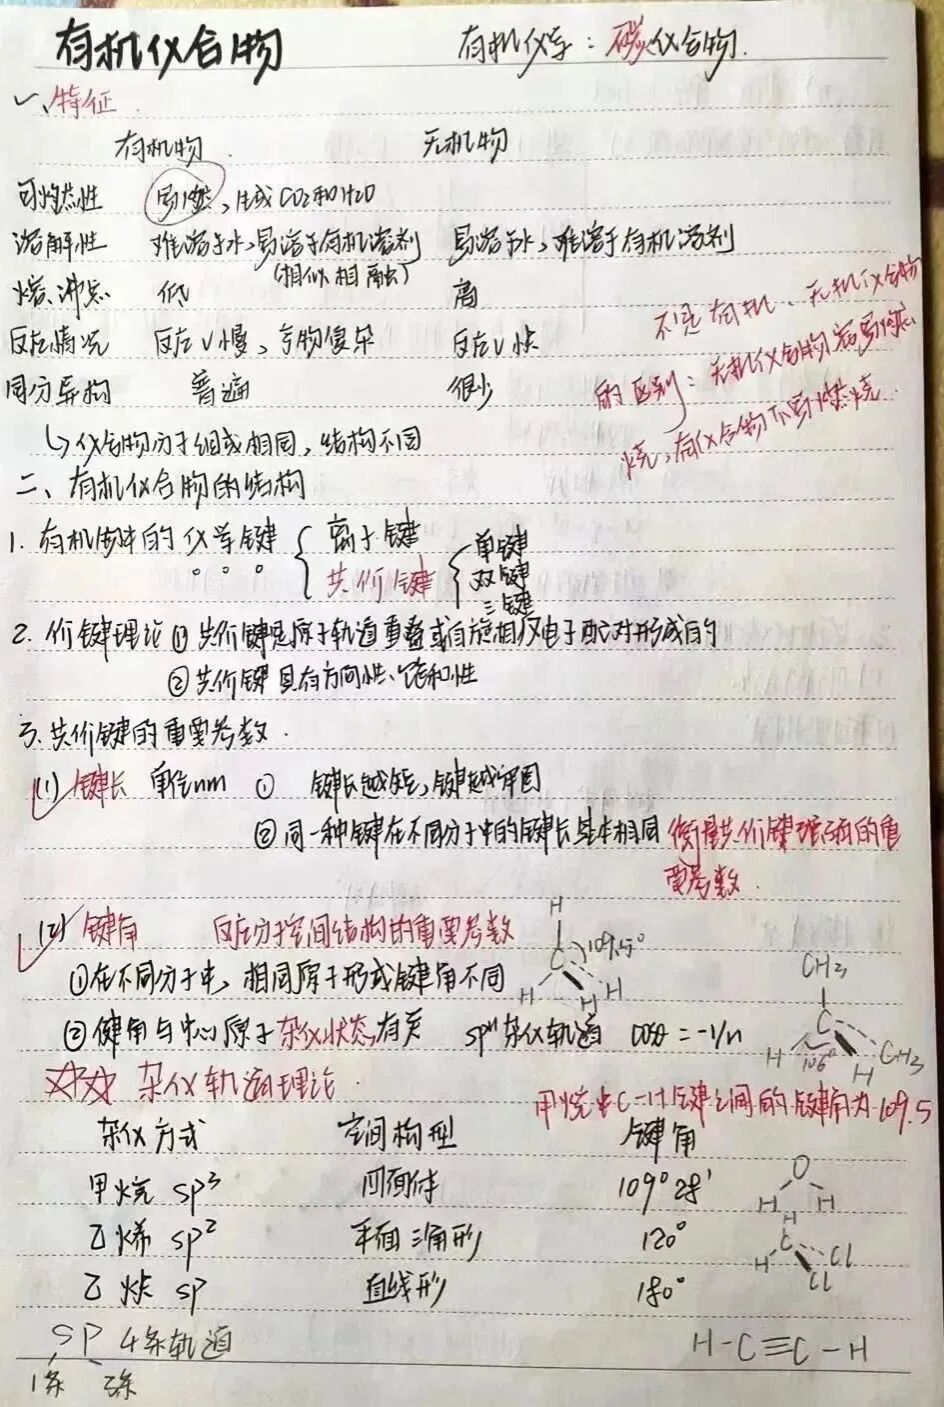 有机化合物
有机化学：碳化合物.
一、特征
有机物 无机物
可燃性 易燃，生成CO2和H2O
溶解性 难溶于水，易溶于有机溶剂 易溶于水，难溶于有机溶剂
(相似相融)
熔、沸点 低 高
反应情况 反应v慢、产物复杂 反应v快
同分异构 普遍 很少
不是有机、无机化合物
的区别：无机化合物容易燃
烧，有化合物不易燃烧
↳化合物分子组成相同，结构不同
二、有机化合物的结构
1. 有机物中的化学键 { 离子键
共价键 { 单键
双键
三键
2. 价键理论 ① 共价键是原子轨道重叠或自旋相反电子配对形成的
② 共价键具有方向性、饱和性
3. 共价键的重要参数.
(1) 键长 单位nm ① 键长越短，键越牢固
② 同一种键在不同分子中的键长基本相同 衡量共价键强弱的重
要参数.
(2) 键角 反应分子空间结构的重要参数
①在不同分子中，相同原子形成键角不同
②健角与中心原子杂化状态有关 spⁿ杂化轨道 cosθ=-1/n
H
C 109.5°
H H H
CH3
C
H 106° H CH3
☆☆ 杂化轨道理论.
甲烷中C-H键之间的键角为109.5
杂化方式 空间构型 键角
甲烷 sp³ 四面体 109°28′
乙烯 sp² 平面三角形 120°
乙炔 sp 直线形 180°
O
H H
H
C
H Cl Cl
SP 4条轨道
1条 3条
H-C≡C-H